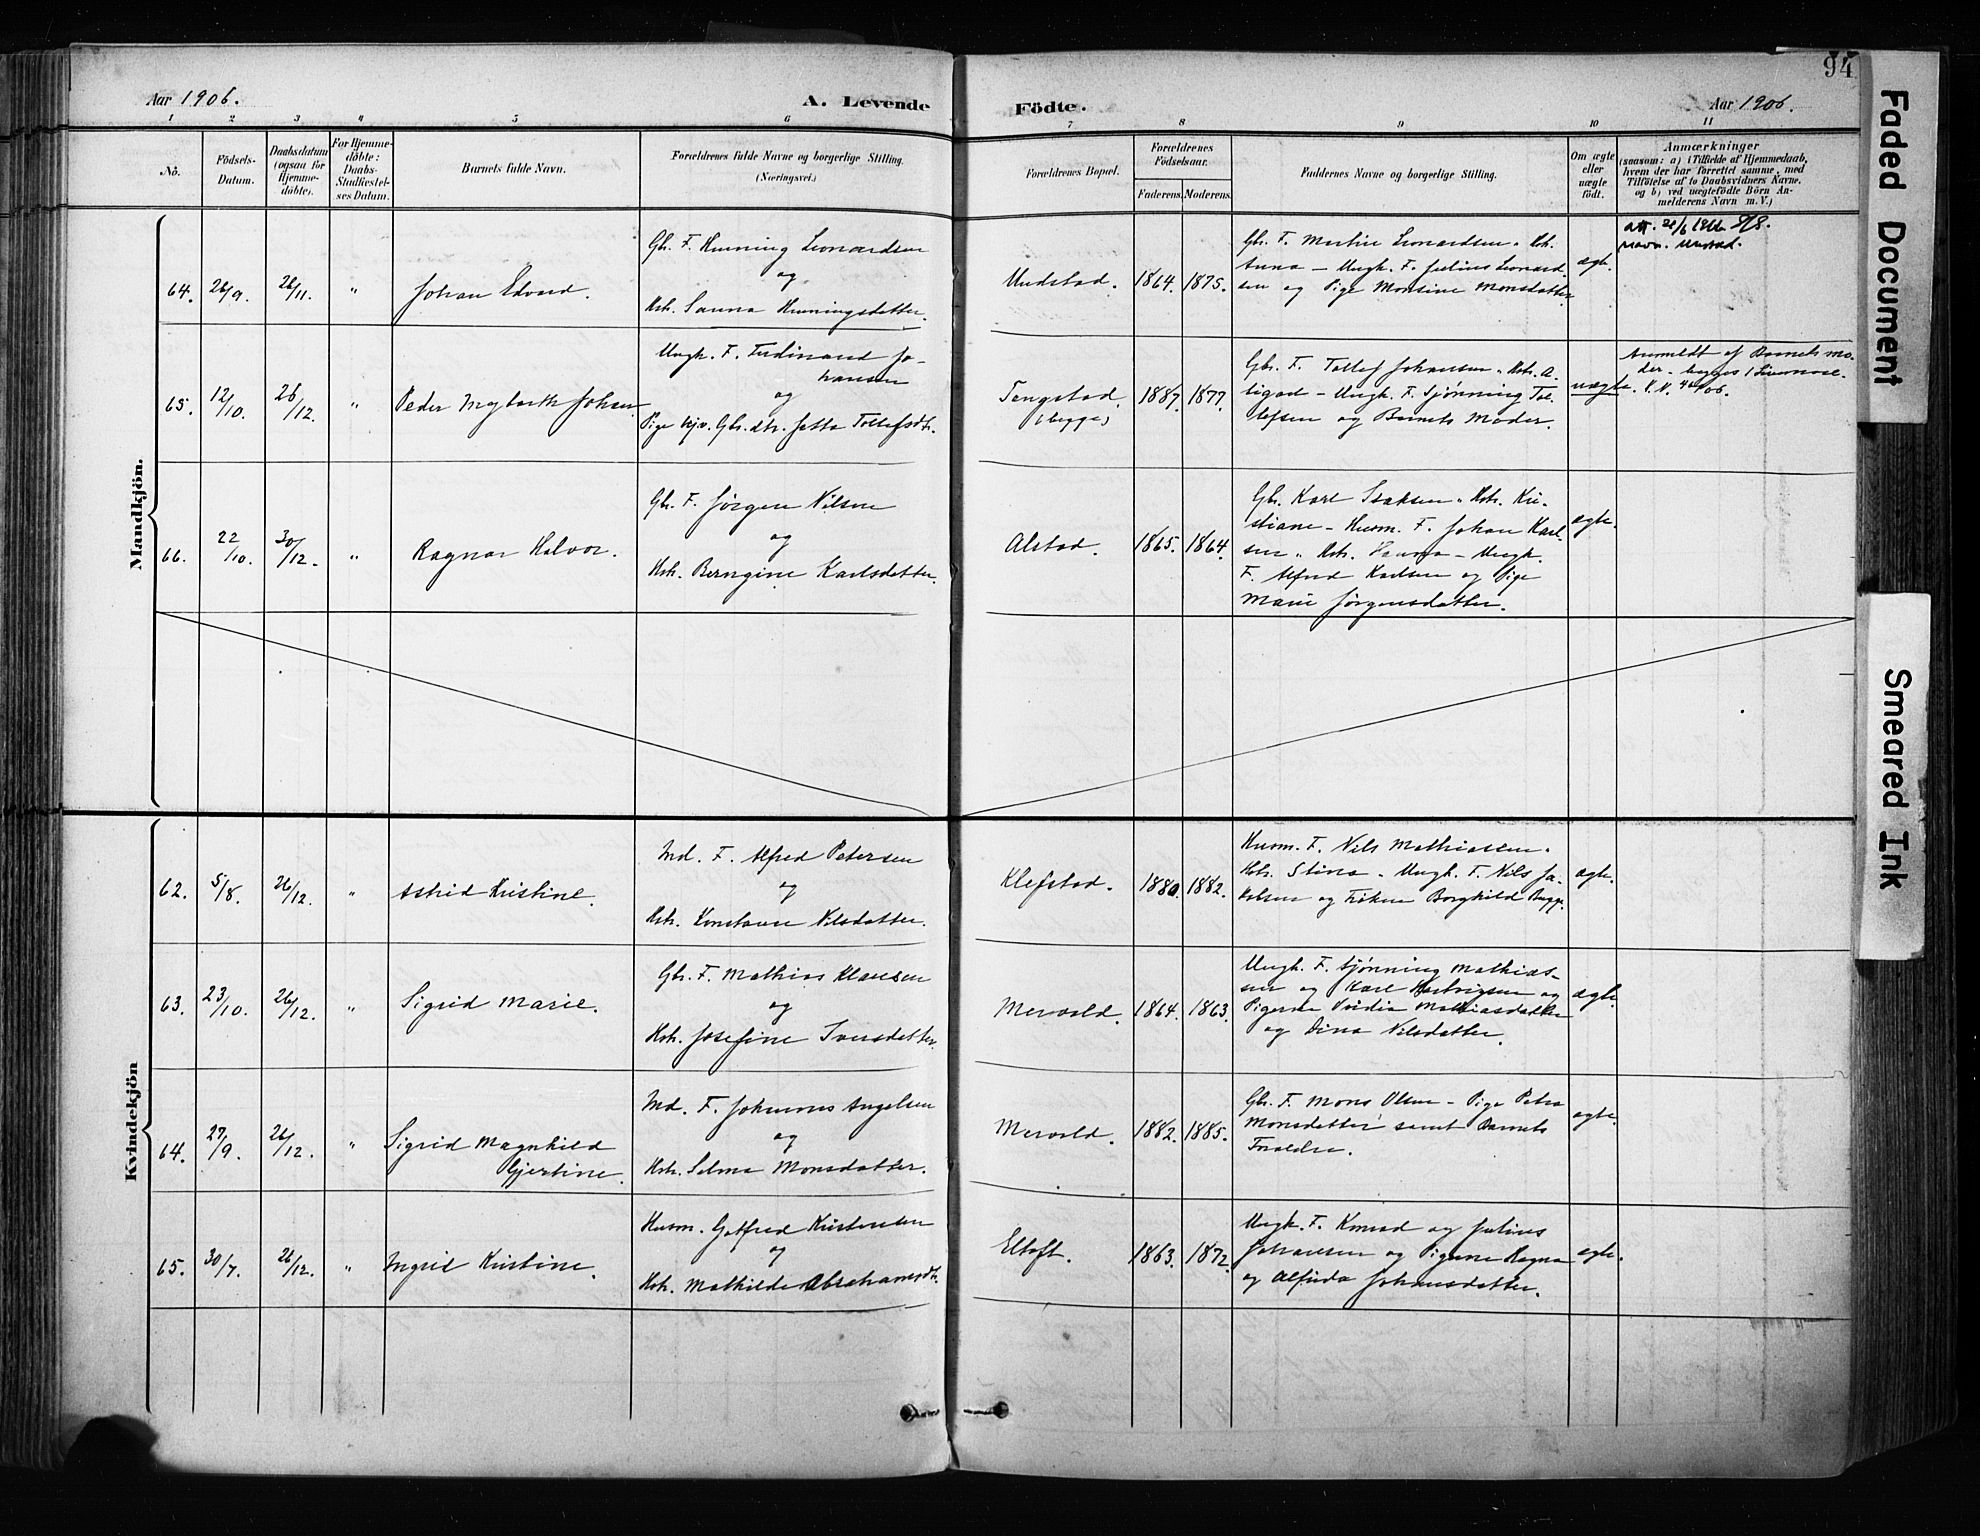 94
Aar 1906.
A. Levende
Födte.
Aar 1906.
1 2 3 4 5 6 7 8 9 10 11
No.
Födsels-
Datum.
Daabsdatum
(ogsaa for
Hjemme-
döbte).
For Hjemme-
döbte:
Daabs-
Stadfæstel-
ses Datum.
Barnets fulde Navn.
Forældrenes fulde Navne og borgerlige Stilling.
(Næringsvei.)
Forældrenes Bopæl.
Forældrenes
Födselsaar.
Faderens. Moderens.
Faddernes Navne og borgerlige Stilling.
Om ægte
eller
uægte
födt.
Anmærkninger
(saasom: a) i Tilfælde af Hjemmedaab,
hvem der har forrettet samme, med
Tilföielse af to Daabsvidners Navne,
og b) ved uægtefödte Börn An-
melderens Navn m. V.)
Mandkjön.
64. 26/9. 26/11. " Johan Edvard.
Gbr. F. Henning Leonardsen
og
Hst. Sanna Henningsdatter.
Undstad. 1864. 1875.
Gbr. F. Martin Leonardsen. Hst.
Anna – Ungk. F. Julius Leonard-
sen og Pige Monsine Monsdatter
ægte.
Navn. Unstad.
65. 12/10. 26/12. " Peder Ingbarth Johan
Ungk. F. Ferdinand Jo-
hansen
og
Pige Gbr. dtr. Jetta Tollefsdtr.
Tangstad.
(begge)
1887. 1877.
Gbr. F. Tollef Johansen. Hst. A-
bigael – Ungk. F. Hjønning Tol-
lefsen og Barnets Moder.
uægte
Anmeldt af Barnets mo-
der –
66. 22/10. 30/12. " Ragnar Halvor.
Gbr. F. Jørgen Nilsen
og
Hst. Berngine Karlsdatter.
Alstad. 1865. 1864.
Gbr. Karl Isaksen. Hst. Kri-
stiane – Husm. F. Johan Karl-
sen. Hst. Hanna – Ungk.
F. Alfred Karlsen og Pige
Marie Jørgensdatter.
ægte.
Kvindekjön
62. 5/8. 26/12. " Astrid Kristine.
Md. F. Alfred Petersen
og
Hst. Konstanse Nilsdatter.
Klefstad. 1880. 1882.
Husm. F. Nils Mathiassen.
Hst. Stina – Ungk. F. Nils Ja-
kobsen og Frøken Borghild Bugge.
ægte.
63. 23/10. 26/12. " Sigrid Marie.
Gbr. F. Mathias Klausen
og
Hst. Josefine Iversdatter.
Mervold. 1864. 1863.
Ungk. F. Hjønning Mathias-
sen og Karl Hartvigsen og
Pigerne Mathiasdatter
og Dina Nilsdatter.
ægte.
64. 27/9. 26/12. " Sigrid Magnhild
Gjertine.
Md. F. Johannes Angelsen
og
Hst. Selma Monsdatter.
Mervold. 1882. 1885.
Gbr. F. Mons Olsen – Pige Petra
Monsdatter samt Barnets
Forældre.
ægte.
65. 30/7. 26/12. " Ingrid Kristine.
Husm. Gotfred Kristensen
og
Hst. Mathilde Abrahamsdtr.
Eltoft. 1863. 1872.
Ungk. F. Konrad og Julius
Johansen og Pigerne Ragna
og Alfrida Johansdatter.
ægte.
Faded Document
Smeared Ink